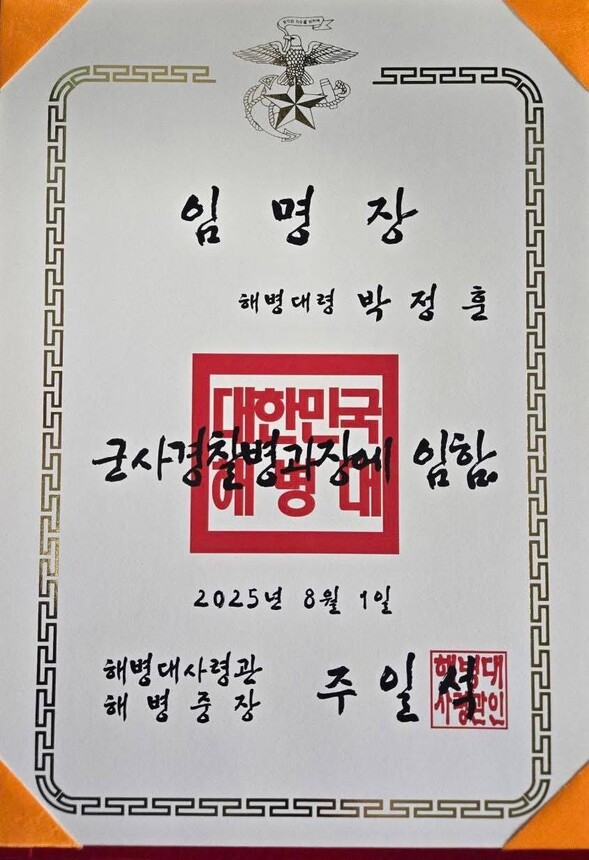 임명장
해병대령 박정훈
대한민국
해병대
군사경찰병과장에 임함
2025년 8월 1일
해병대사령관
해병중장 주일석
해병대
사령관인